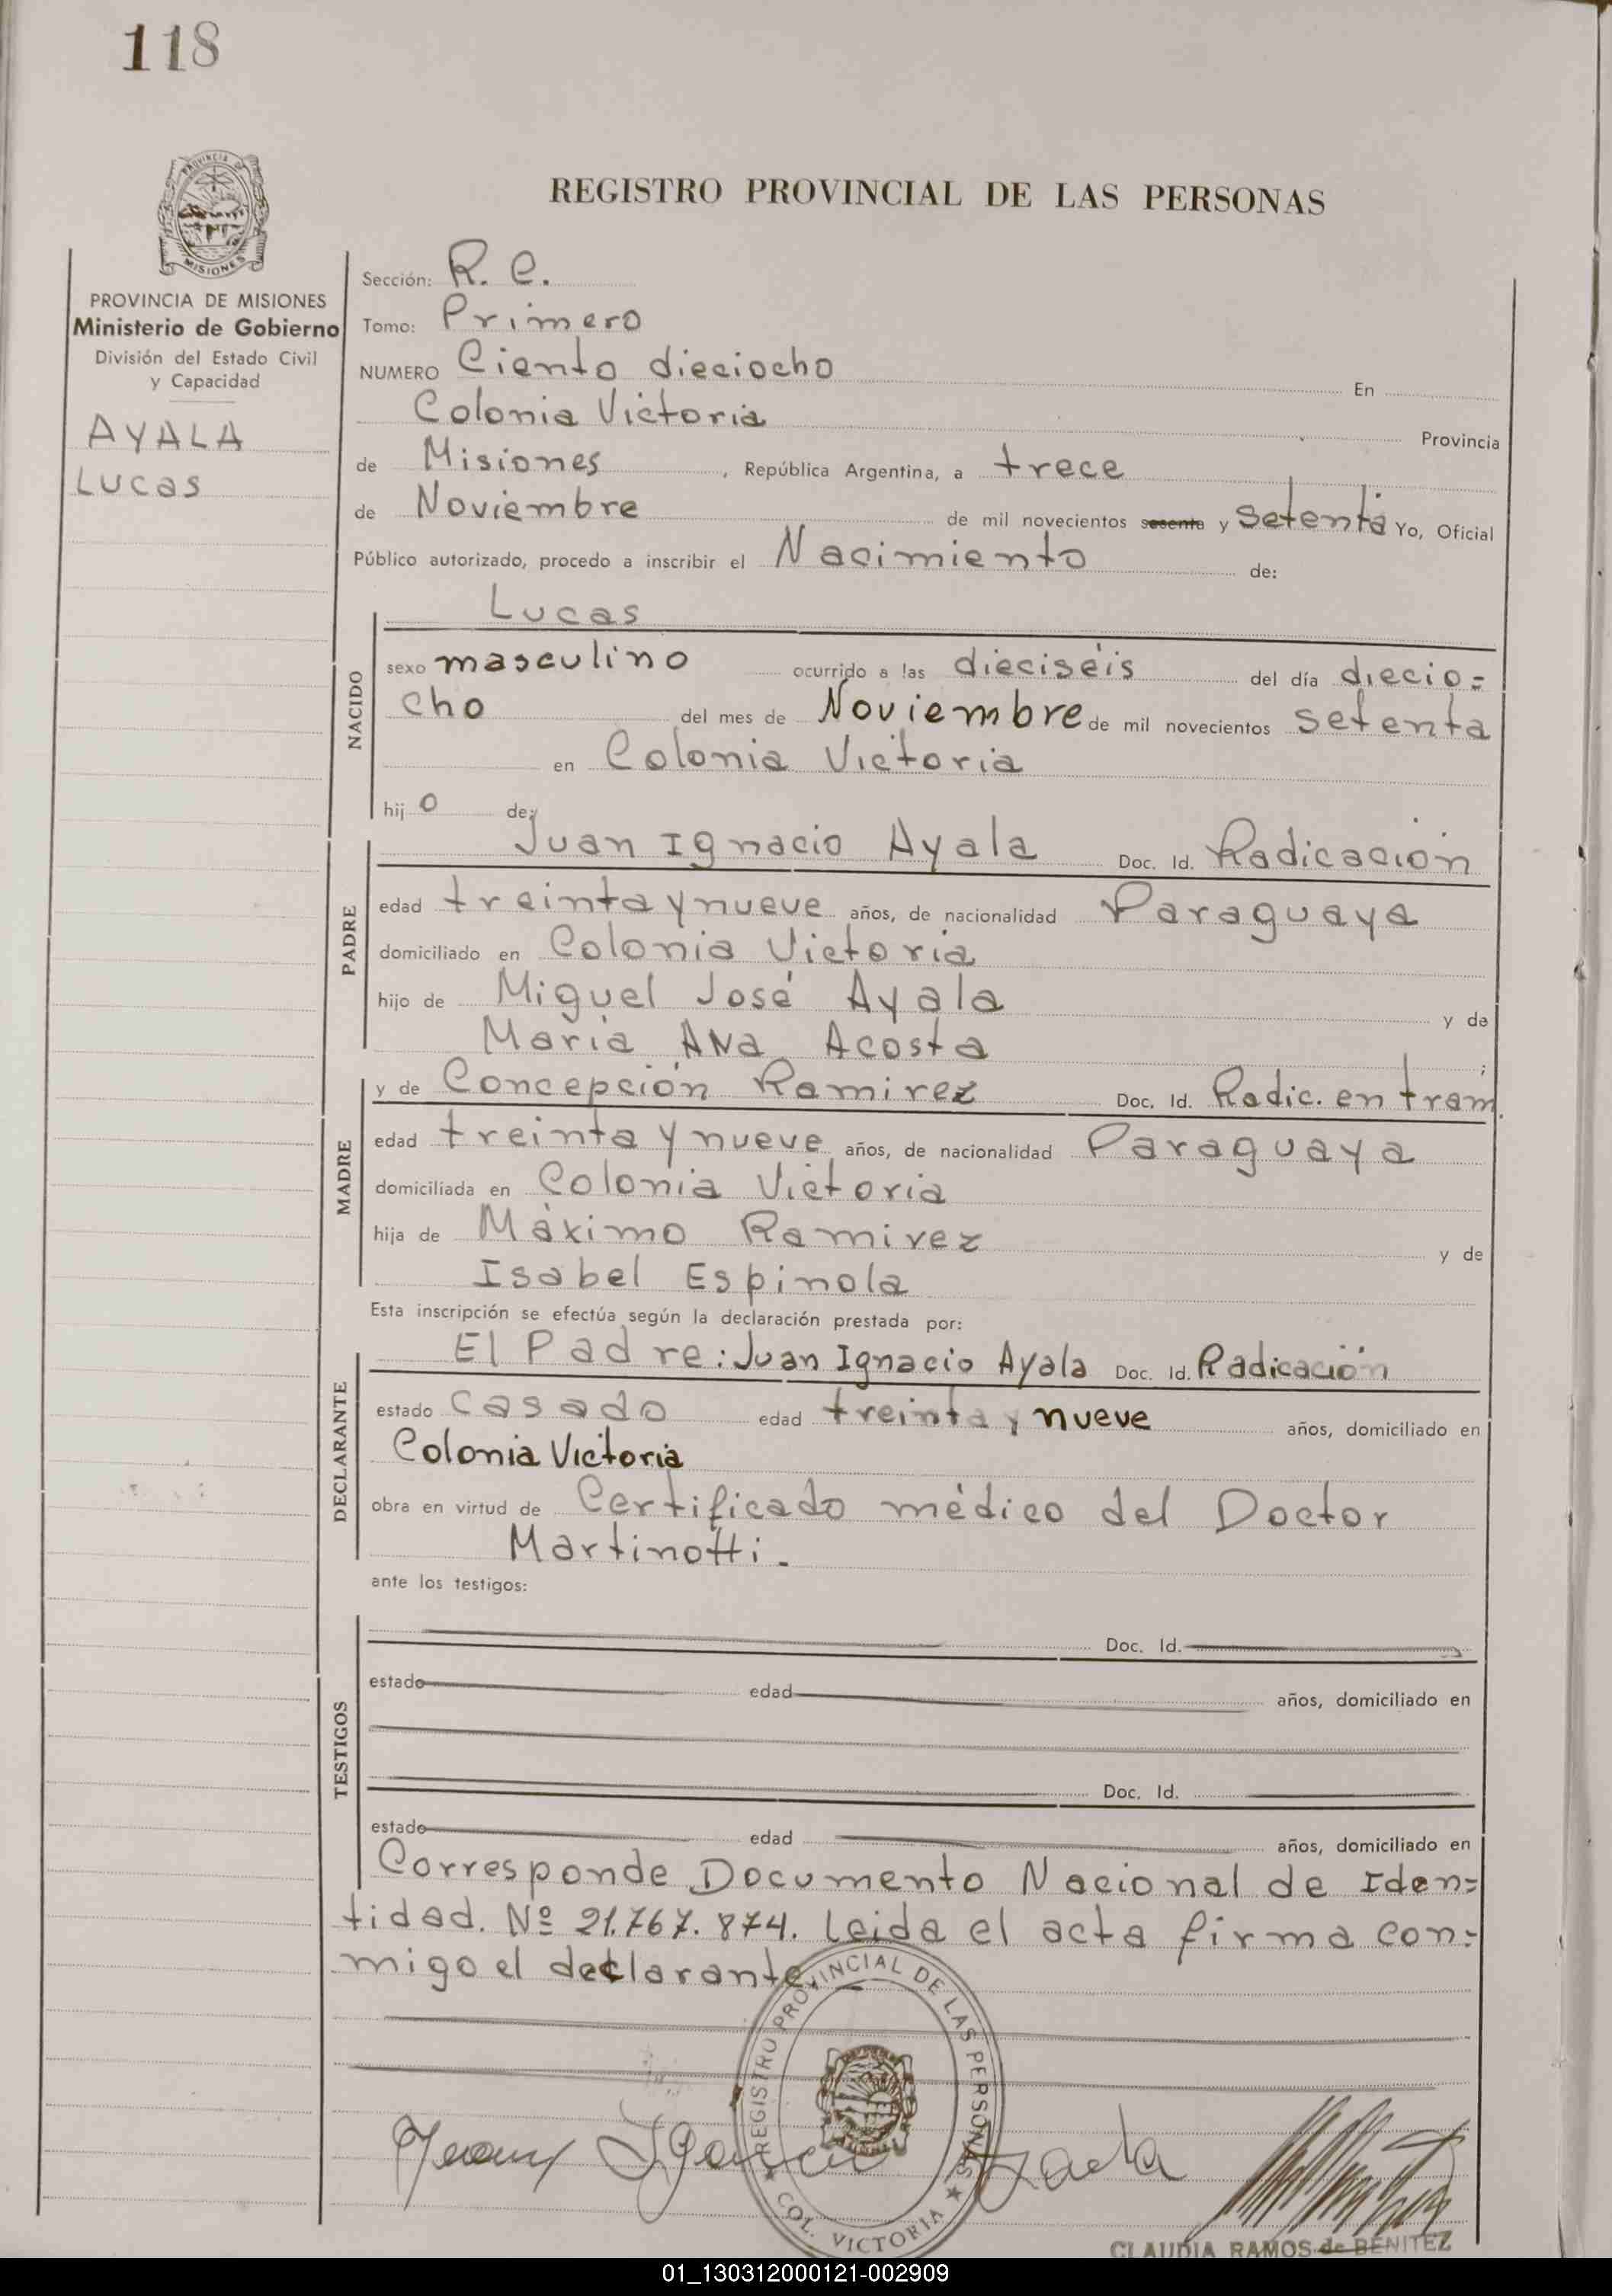 118
PROVINCIA DE
MISIONES
REGISTRO PROVINCIAL DE LAS PERSONAS
PROVINCIA DE MISIONES
Ministerio de Gobierno
División del Estado Civil
y Capacidad
AYALA
Lucas
Sección: R. C.
Tomo: Primero
NUMERO Ciento dieciocho En
Colonia Victoria Provincia
de Misiones, República Argentina, a trece
de Noviembre de mil novecientos sesenta y Setenta Yo, Oficial
Público autorizado, procedo a inscribir el Nacimiento de:
Lucas
NACIDO
sexo masculino ocurrido a las dieciséis del día diecio=
cho del mes de Noviembre de mil novecientos setenta
en Colonia Victoria
hij o de:
PADRE
Juan Ignacio Ayala Doc. Id. Radicación
edad treinta y nueve años, de nacionalidad Paraguaya
domiciliado en Colonia Victoria
hijo de Miguel José Ayala y de
María Ana Acosta ;
MADRE
y de Concepción Ramirez Doc. Id. Radic. en tram.
edad treinta y nueve años, de nacionalidad Paraguaya
domiciliada en Colonia Victoria
hija de Máximo Ramirez y de
Isabel Espinola
Esta inscripción se efectúa según la declaración prestada por:
DECLARANTE
El Padre: Juan Ignacio Ayala Doc. Id. Radicación
estado Casado edad treinta y nueve años, domiciliado en
Colonia Victoria
obra en virtud de Certificado médico del Doctor
Martinotti.
ante los testigos:
TESTIGOS
Doc. Id.
estado edad años, domiciliado en
Doc. Id.
estado edad años, domiciliado en
Corresponde Documento Nacional de Iden=
tidad. Nº 21.767.874. Leida el acta firma con=
migo el declarante.
REGISTRO PROVINCIAL DE LAS PERSONAS
COL. VICTORIA
Juan Ignacio Ayala
CLAUDIA RAMOS de BENITEZ
01_130312000121-002909